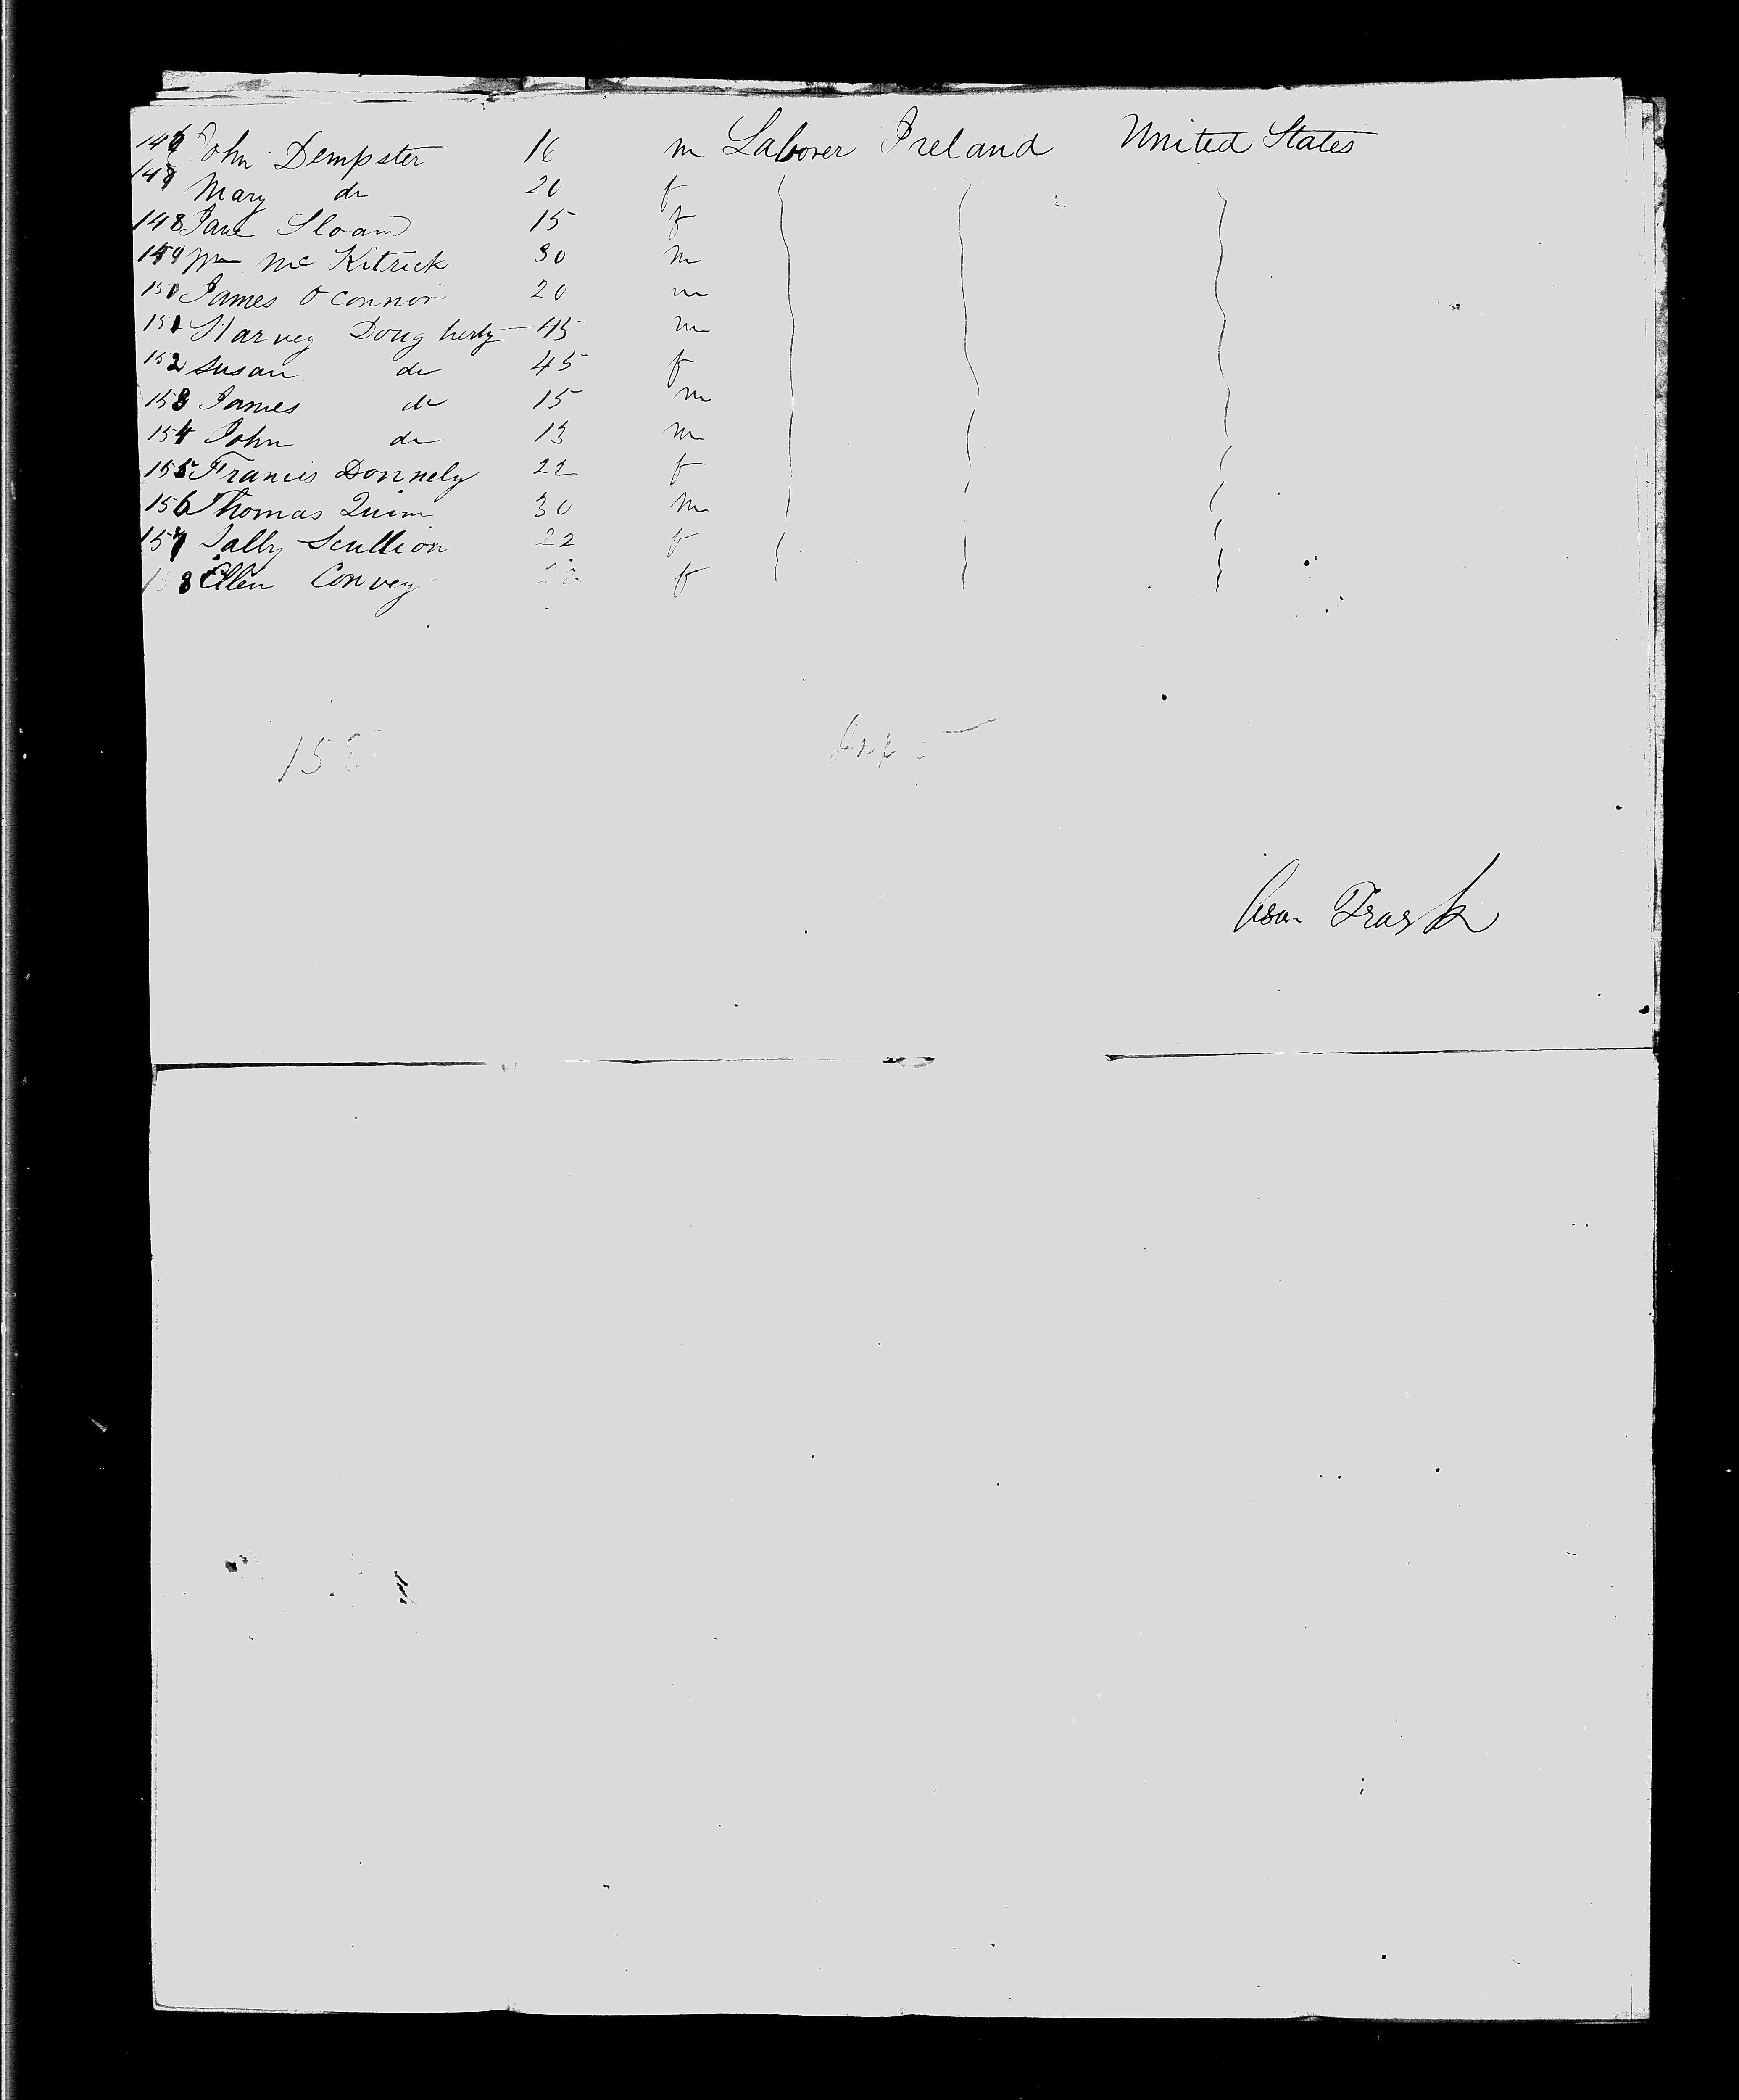 146 John Dempster 16 m Laborer Ireland United States
147 Mary do 20 f
148 Jane Sloan 15 f
149 Wm McKitrick 30 m
150 James O Connor 20 m
151 Harvey Dougherty 45 m
152 Susan do 45 f
153 James do 15 m
154 John do 13 m
155 Francis Donnely 22 f
156 Thomas Quinn 30 m
157 Sally Scullion 22 f
158 Ellen Convey f
158
Trask